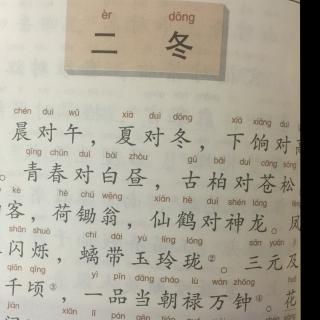 èr dōng
二 冬
chén duì wǔ xià duì dōng xià xiǎng duì
晨对午，夏对冬，下饷对高
qīng chūn duì bái zhòu gǔ bǎi duì cāng sōng
。青春对白昼，古柏对苍松
kè hè chú wēng xiān hè duì shén lóng
客，荷锄翁，仙鹤对神龙。凤
shǎn shuò chī dài yù líng lóng sān yuán jí
闪烁，螭带玉玲珑②。三元及
qiān qǐng yì pǐn dāng cháo lù wàn zhōng huā
千顷③，一品当朝禄万钟④。花